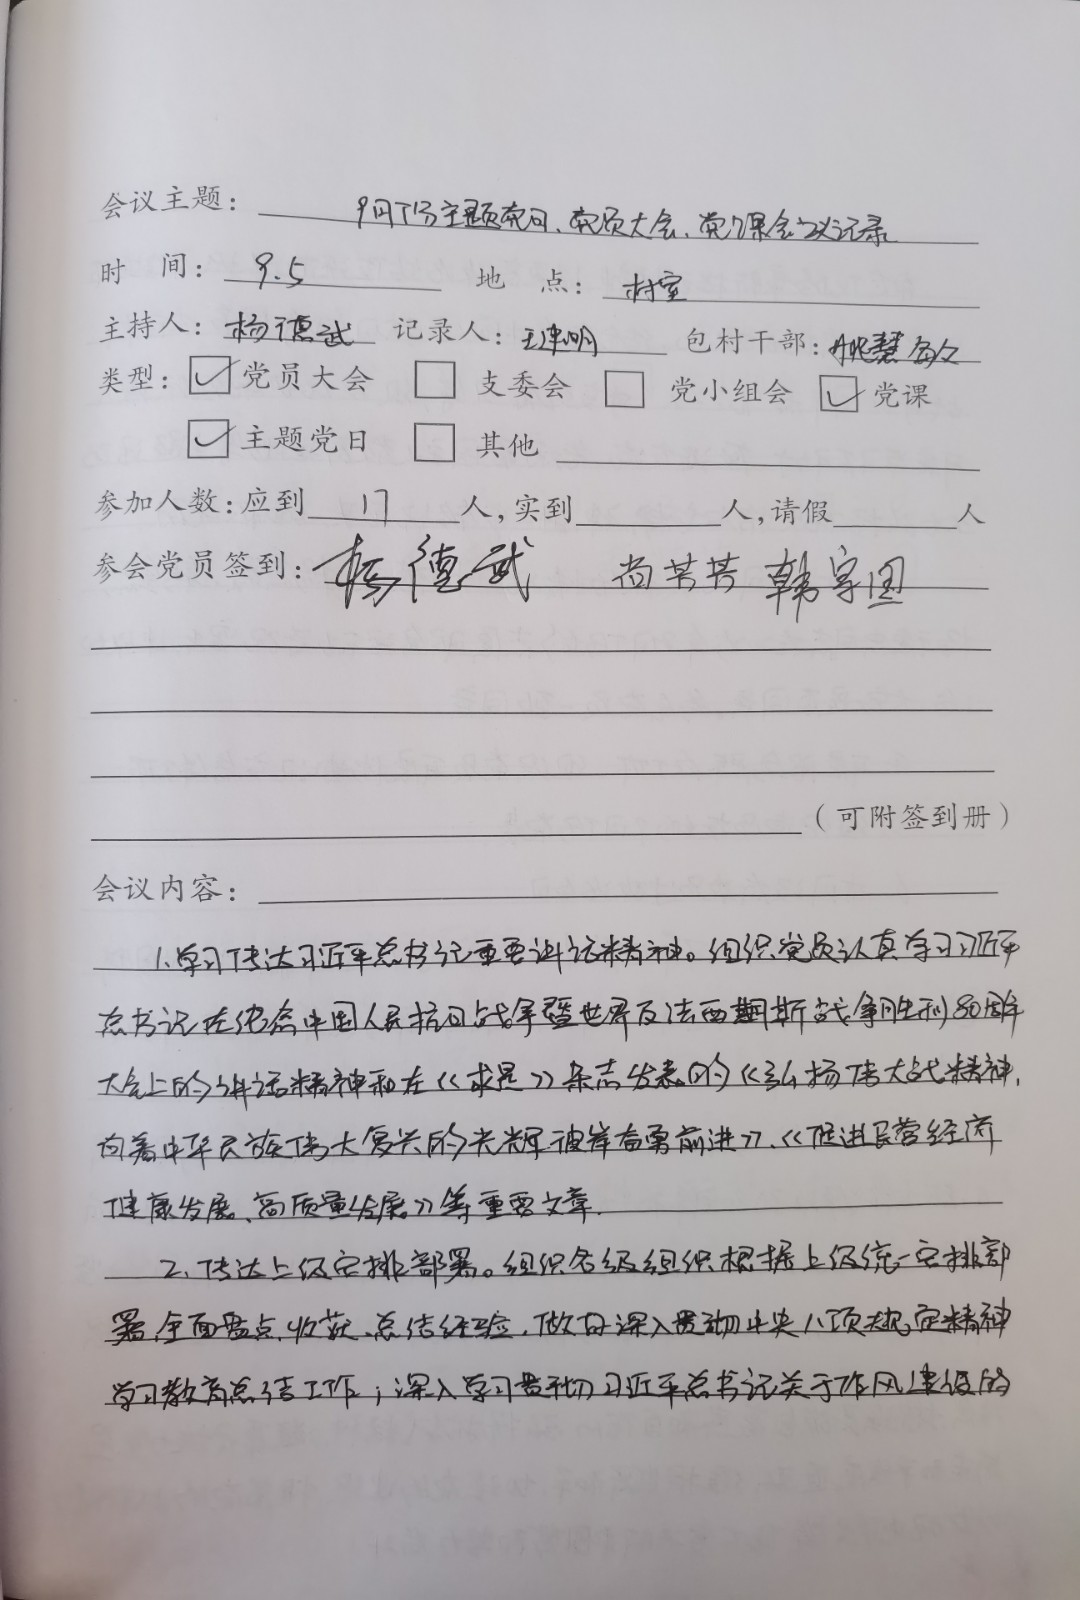 会议主题：9月份主题党日、党员大会、党课会议记录
时 间：9.5 地 点：村室
主持人：杨德武 记录人：王建明 包村干部：姚慧敏
类型：党员大会 支委会 党小组会 党课
主题党日 其他
参加人数：应到17人，实到人，请假人
参会党员签到：杨德武 尚芳芳 韩家国
（可附签到册）
会议内容：
1.学习传达习近平总书记重要讲话精神。组织党员认真学习习近平
总书记在纪念中国人民抗日战争暨世界反法西斯战争胜利80周年
大会上的讲话精神和在《求是》杂志发表的《弘扬伟大战精神，
向着中华民族伟大复兴的光辉彼岸奋勇前进》、《促进民营经济
健康发展、高质量发展》等重要文章.
2.传达上级安排部署。组织各级组织根据上级统一安排部
署,全面盘点收获、总结经验，做好深入贯彻中央八项规定精神
学习教育总结工作；深入学习贯彻习近平总书记关于作风建设的